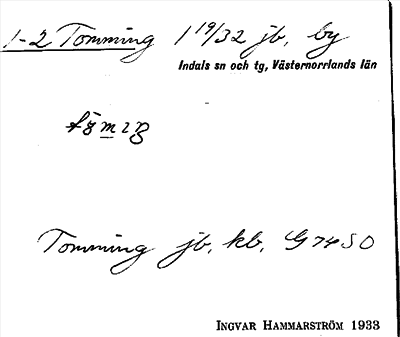 1-2 Tomming 1 19/32 jb, by
Indals sn och tg, Västernorrlands län
Tomming jb, kb, G 74 SO
INGVAR HAMMARSTRÖM 1933